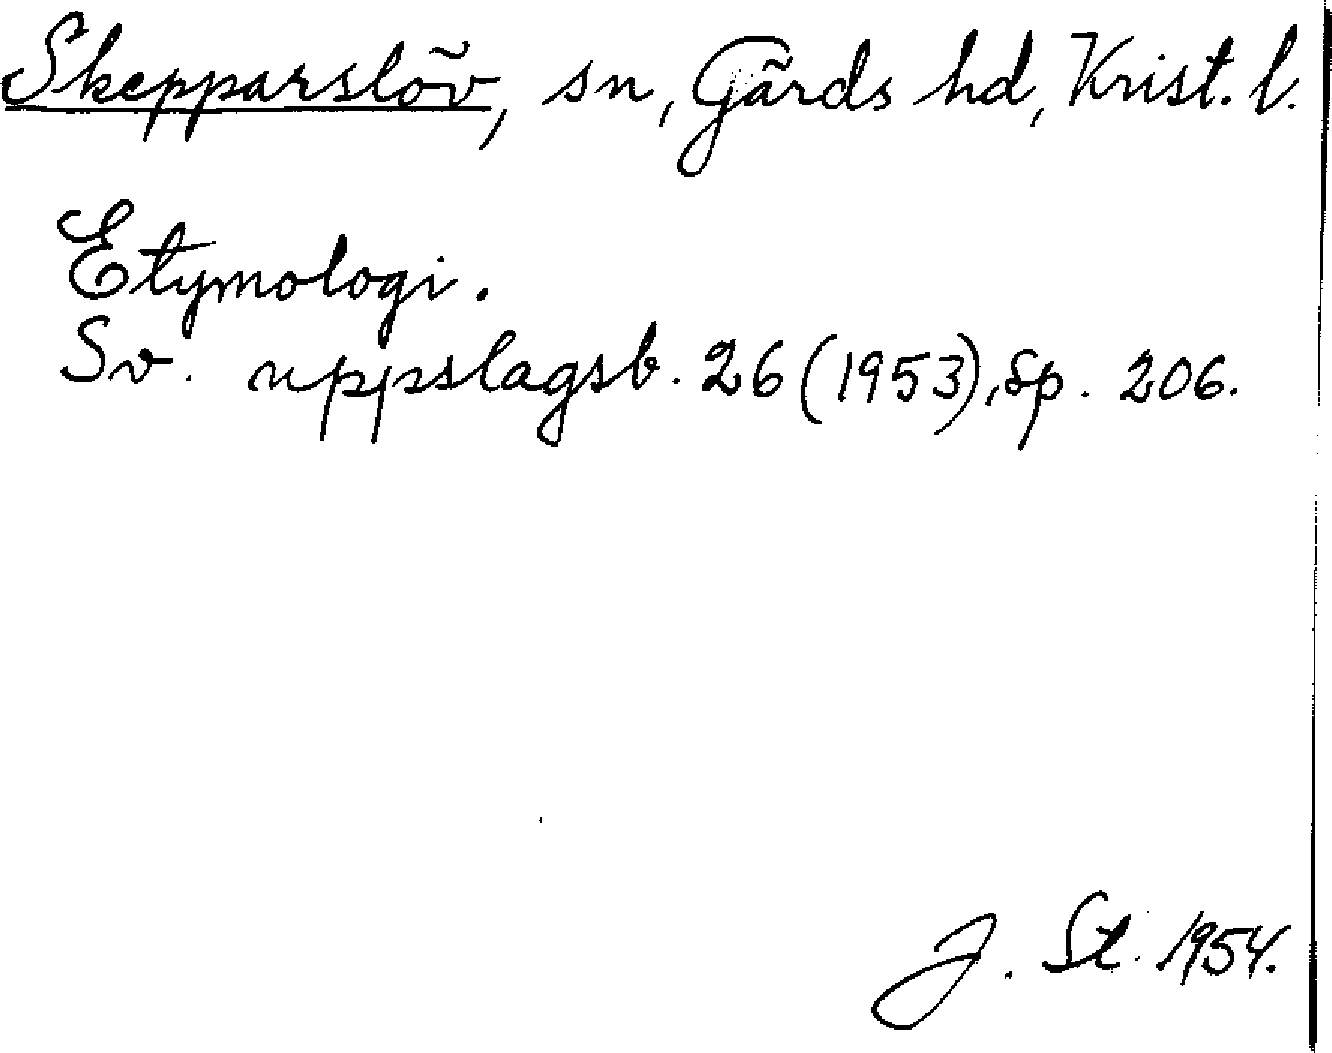 Skepparslöv, sn, Gärds hd, Krist. l.
Etymologi.
Sv. uppslagsb. 26 (1953), sp. 206.
J. St. 1954.